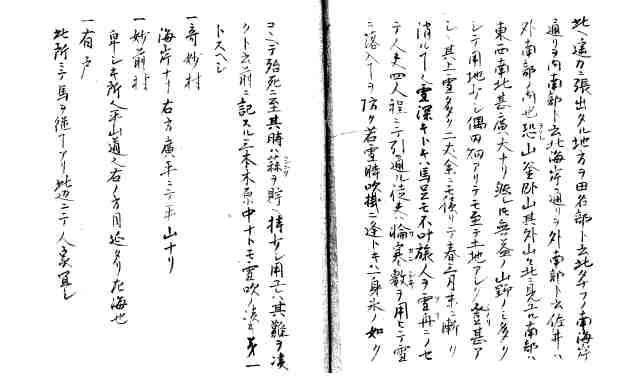 北ヘ遠ク張出タル地方ヲ田名部ト云北タナフノ南海岸
通リヲ内南部ト云北海岸通リヲ外南部ト云佐井ハ
外南部ノ内也恐山釜臥山其外山々此ニ見エル南部ハ
東西南北甚廣大ナリ然レ𪜈無益ノ山野ノミ多ク
シテ用地少シ偶田畑アリテモ至テ土地アシク登甚ア
シヽ其上雪多ク二丈余ニモ積リテ春三月末ニ漸リ
消ルナリ雪深キトキハ馬足モ不叶旅人ヲ雪舟ニノセ
テ人夫四人程ニテ引通ル徒夫ハ輪寒敷ヲ用ヒテ雪
ニ落入ヿヲ防ク若雪時吹掛ニ逢トキハ一身氷ノ如ク
コヽヘテ殆死ニ至其時ハ蒜ヲ貯ヘ持少シ用レハ其難ヲ凌
クト云前ニ記スル三本木原中ナトモ雪吹ノ凌キ第一
トスヘシ
一奇妙村
海岸ナリ右方廣平ニテ平山ナリ
一妙前村
卑シキ所平山道之右ノ方ノ左海也
一有戸
此所ニテ馬ヲ継ナリ此辺ニテ人家冝シ